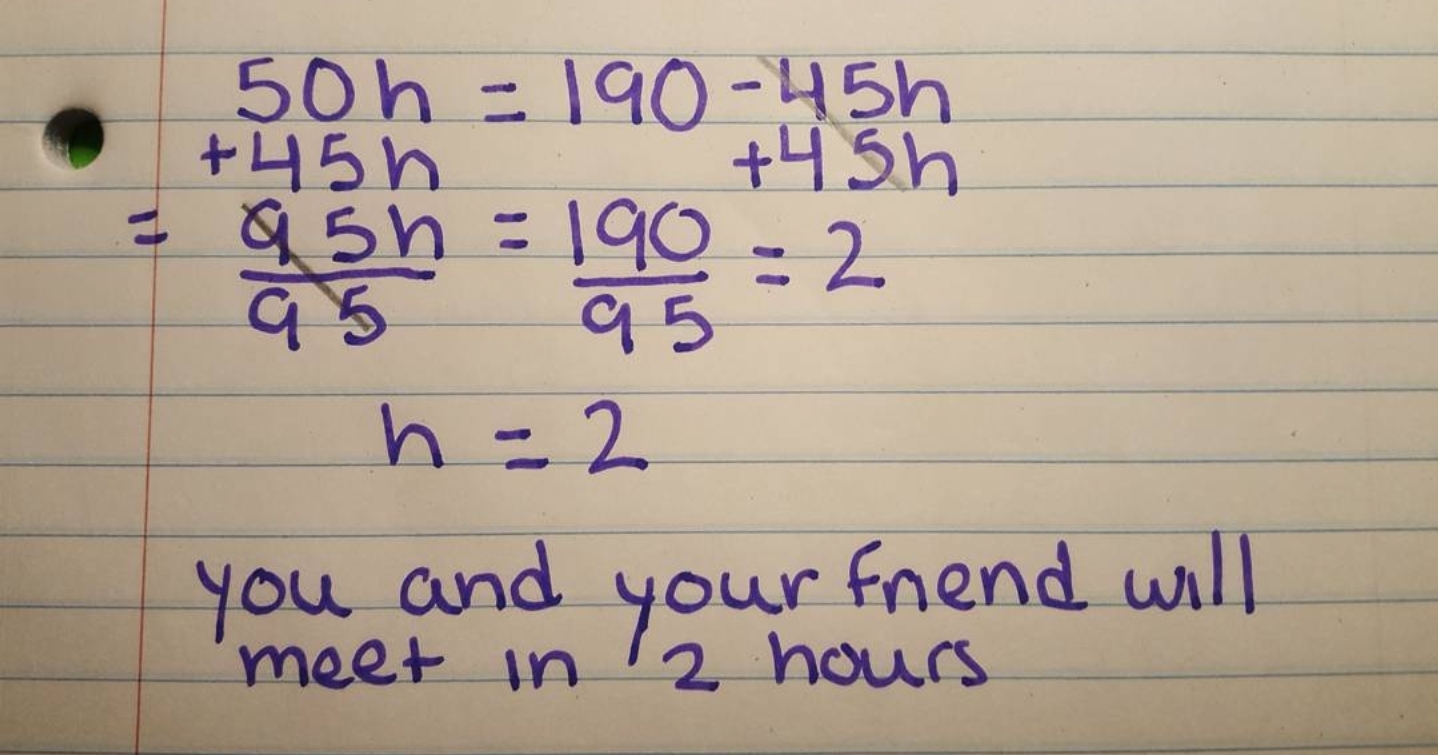 50h = 190 - 45h
+45h +45h
= 95h = 190 = 2
95 95
h = 2
you and your friend will
meet in 2 hours